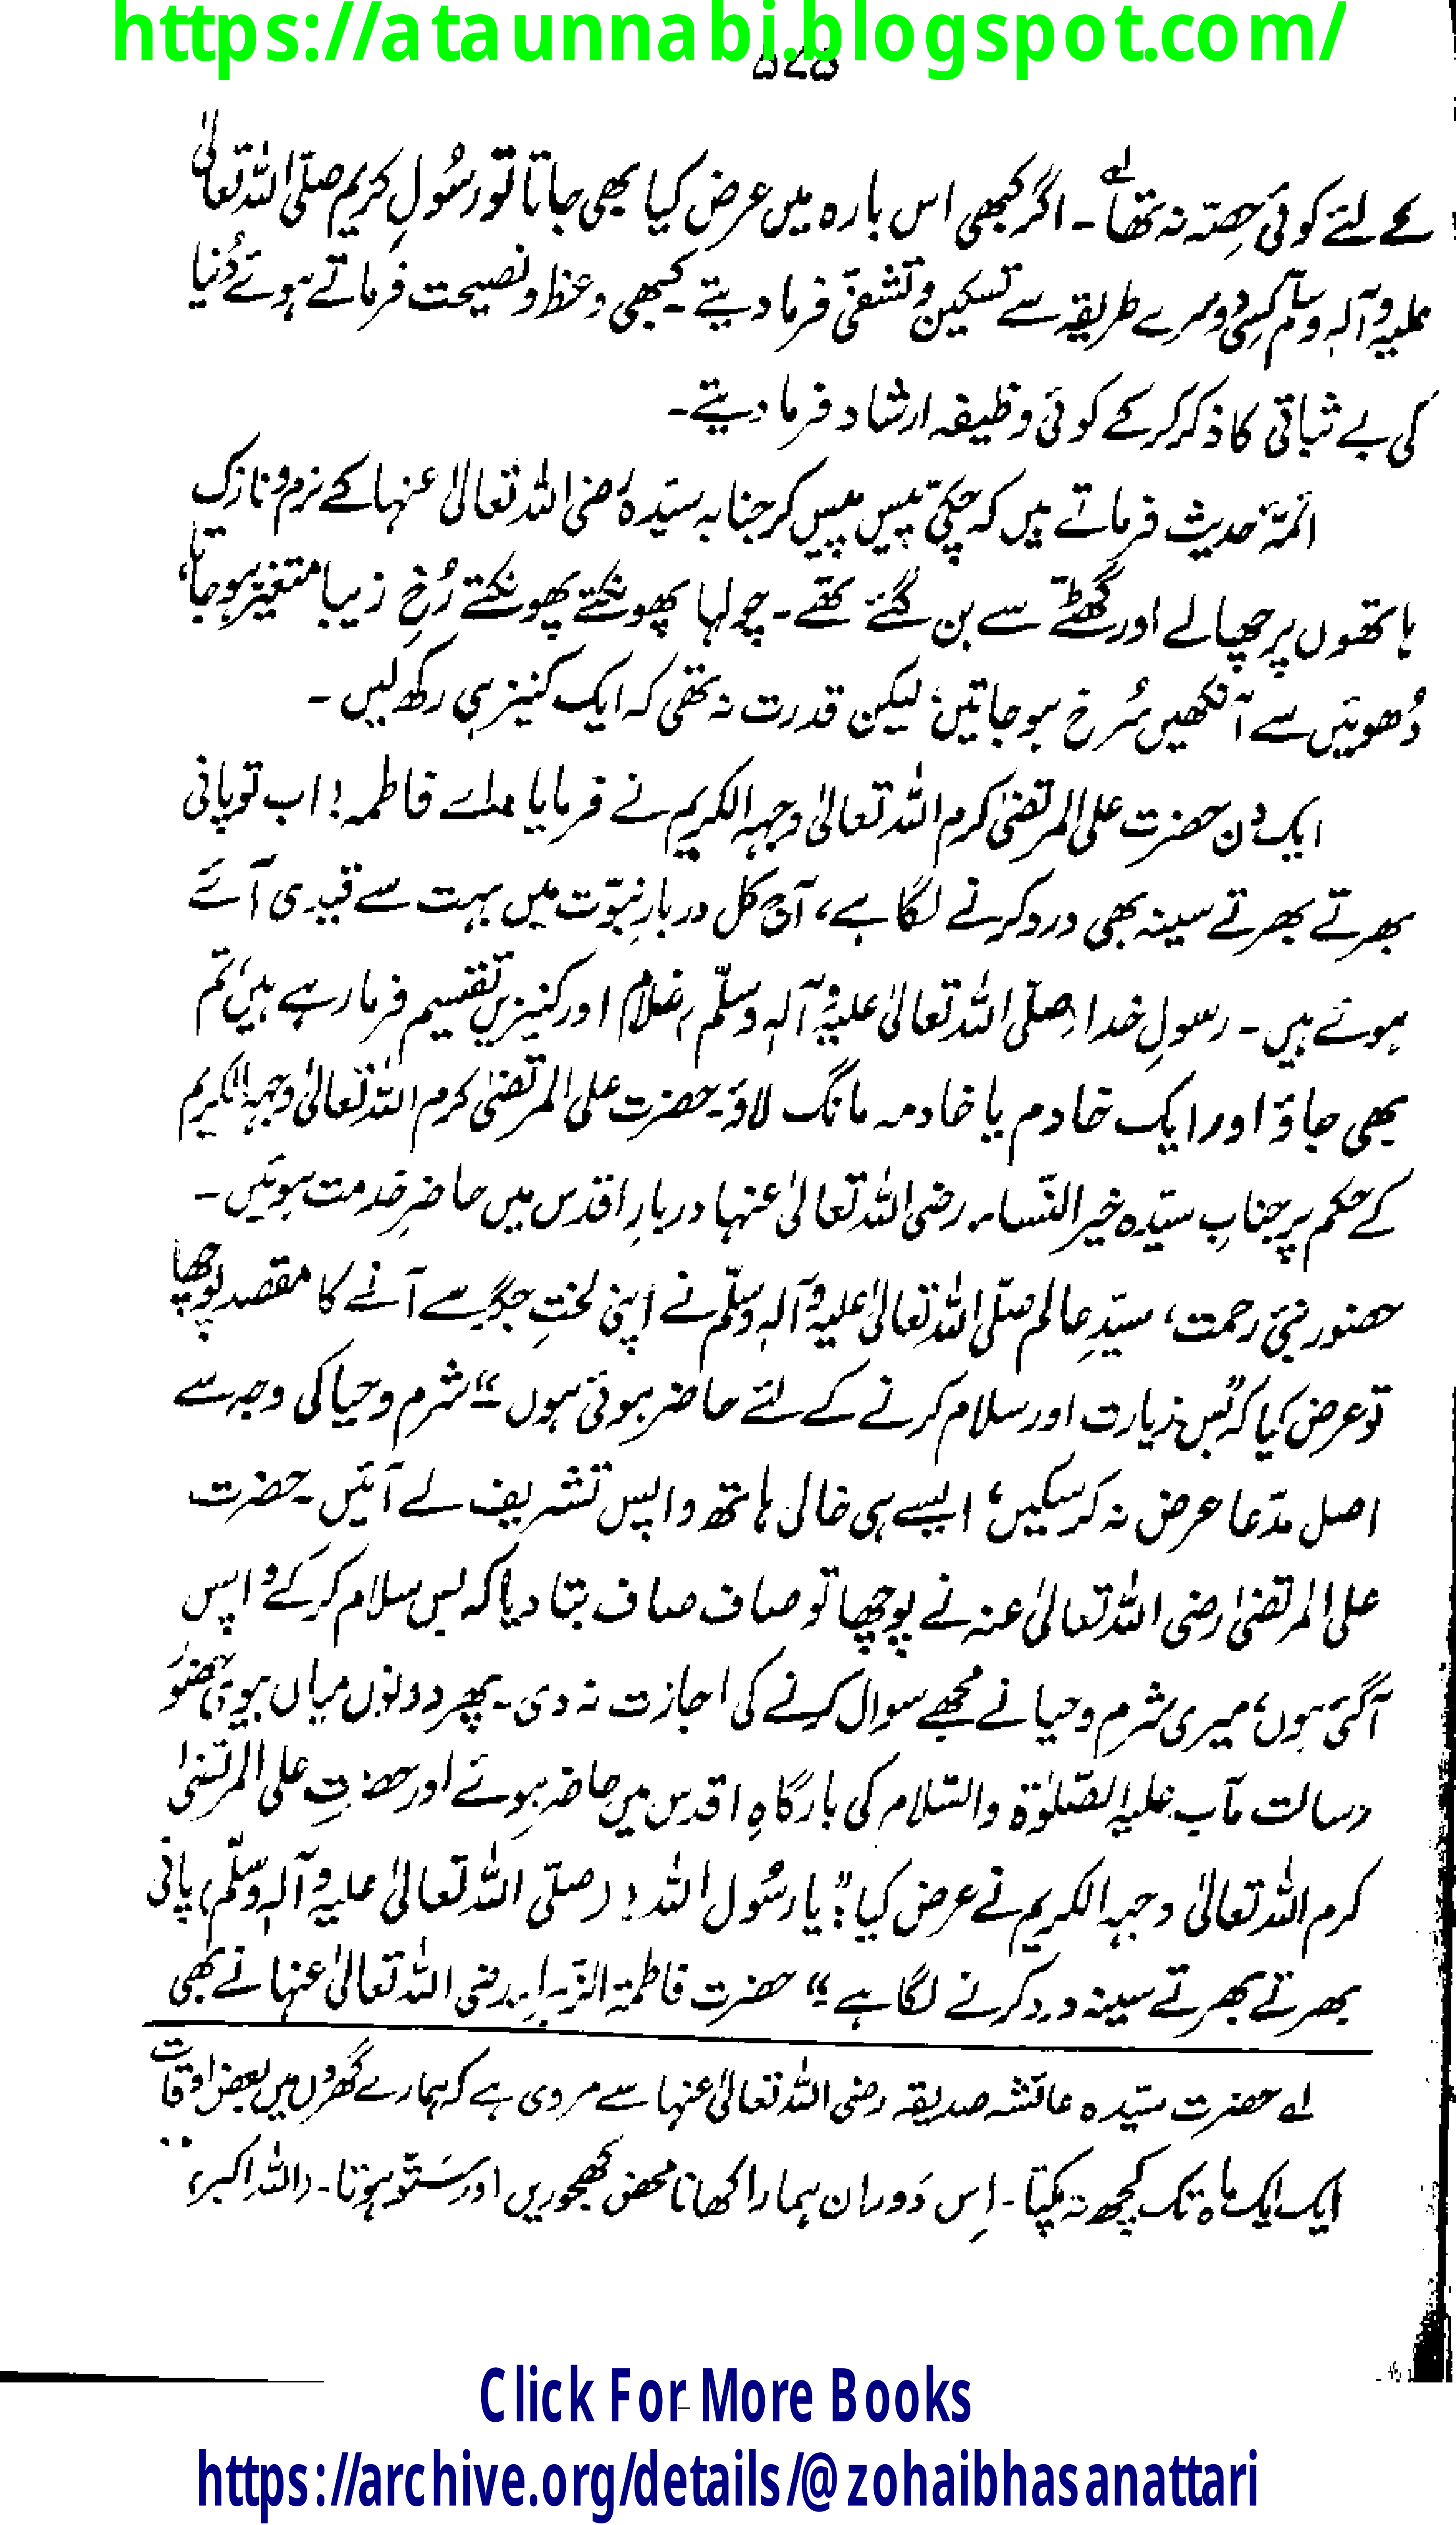 https://ataunnabi.blogspot.com/
۵۷۵
کے لئے کوئی حِصّہ نہ تھا لے۔ اگر کبھی اس بارہ میں عرض کیا بھی جاتا تو رسُولِ کریم صلّی اللہ تعالیٰ
علیہ وآلہ وسلّم کسِی دوسرے طریقہ سے تسکین و تشفیّ فرما دیتے۔ کبھی وعظ و نصیحت فرماتے ہوئے دُنیا
کی بے ثباتی کا ذکر کرکے کوئی وظیفہ ارشاد فرما دیتے۔
ائمّہ حدیث فرماتے ہیں کہ چکّی پیس پیس کر جنابہ سیّدہ رضی اللہ تعالیٰ عنہا کے نرم و نازک
ہاتھوں پر چھالے اور گھٹّے سے بن گئے تھے۔ چولہا پھونکتے پھونکتے رُخِ زیبا متغیّر ہو جاتا،
دُھوئیں سے آنکھیں سُرخ ہو جاتیں، لیکن قدرت نہ تھی کہ ایک کنیز ہی رکھ لیں۔
ایک دن حضرت علی المرتضیٰ کرم اللہ تعالیٰ وجہہ الکریم نے فرمایا "اے فاطمہ! اب تو پانی
بھرتے بھرتے سینہ بھی درد کرنے لگا ہے، آج کل دربارِ نبوّت میں بہت سے قیدی آئے
ہوئے ہیں۔ رسولِ خدا (صلّی اللہ تعالیٰ علیہ وآلہ وسلّم) غلام اور کنیزیں تقسیم فرما رہے ہیں، تم
بھی جاؤ اور ایک خادم یا خادمہ مانگ لاؤ۔ حضرت علی المرتضیٰ کرم اللہ تعالیٰ وجہہ الکریم
کے حکم پر جنابِ سیّدہ خیر النّساء رضی اللہ تعالیٰ عنہا دربارِ اقدس میں حاضرِ خدمت ہوئیں۔
حضور نبیّ رحمت، سیّدِ عالم صلّی اللہ تعالیٰ علیہ وآلہ وسلّم نے اپنی لختِ جگر سے آنے کا مقصد پوچھا
تو عرض کیا کہ "بس زیارت اور سلام کرنے کے لئے حاضر ہوئی ہوں"۔ شرم و حیا کی وجہ سے
اصل مدّعا عرض نہ کر سکیں، ایسے ہی خالی ہاتھ واپس تشریف لے آئیں۔ حضرت
علی المرتضیٰ رضی اللہ تعالیٰ عنہ نے پوچھا تو صاف صاف بتا دیا کہ بس سلام کر کے واپس
آگئی ہوں، میری شرم و حیا نے مجھے سوال کرنے کی اجازت نہ دی۔ پھر دونوں میاں بیوی حضورِ
رسالت مآب علیہ الصّلوٰۃ والسّلام کی بارگاہِ اقدس میں حاضر ہوئے اور حضرتِ علی المرتضیٰ
کرم اللہ تعالیٰ وجہہ الکریم نے عرض کیا: "یا رسُول اللہ! (صلّی اللہ تعالیٰ علیہ وآلہ وسلّم) پانی
بھرتے بھرتے سینہ درد کرنے لگا ہے"۔ حضرت فاطمۃ الزّہراء رضی اللہ تعالیٰ عنہا نے بھی
لے حضرت سیّدہ عائشہ صدیقہ رضی اللہ تعالیٰ عنہا سے مروی ہے کہ ہمارے گھروں میں بعض اوقات
ایک ایک ماہ تک کچھ نہ پکتا۔ اِس دَوران ہمارا کھانا محض کھجوریں اور سَتّو ہوتا۔ (اللہ اکبر)
Click For More Books
https://archive.org/details/@zohaibhasanattari